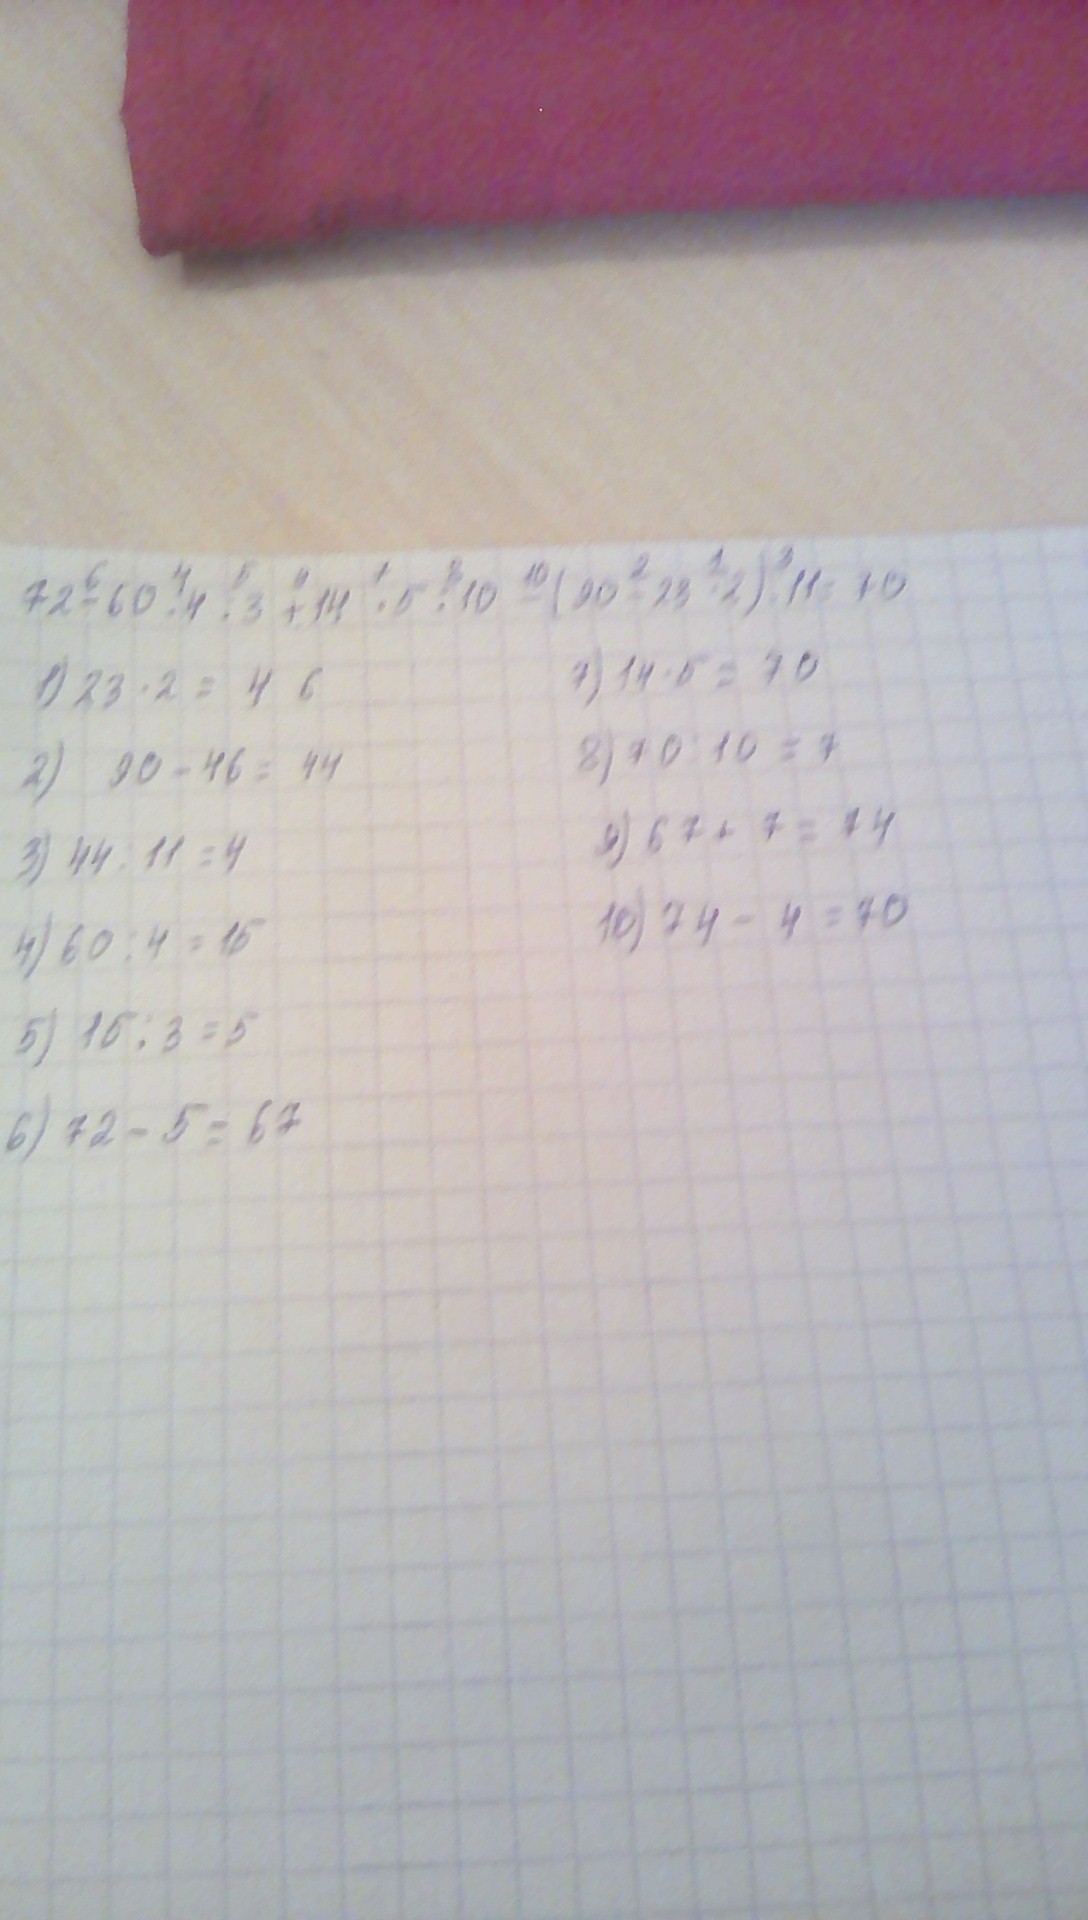 72-60:4:3+14·5:10-(90-23·2):11=70
1) 23·2= 46
2) 90-46= 44
3) 44:11=4
4) 60:4=15
5) 15:3=5
6) 72-5=67
7) 14·5=70
8) 70:10=7
9) 67+7=74
10) 74-4=70